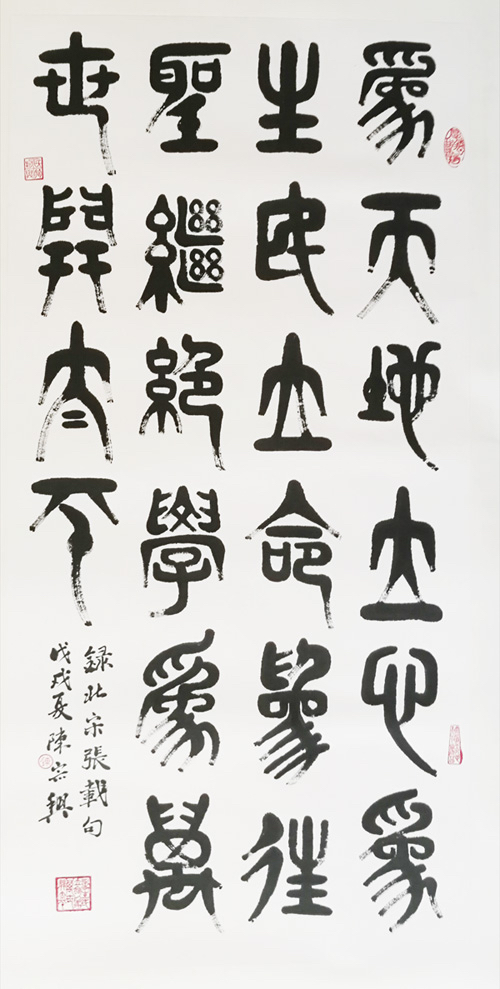 為天地立心為
生民立命為往
聖繼絕學為萬
世開太平
錄北宋張載句
戊戌夏陳